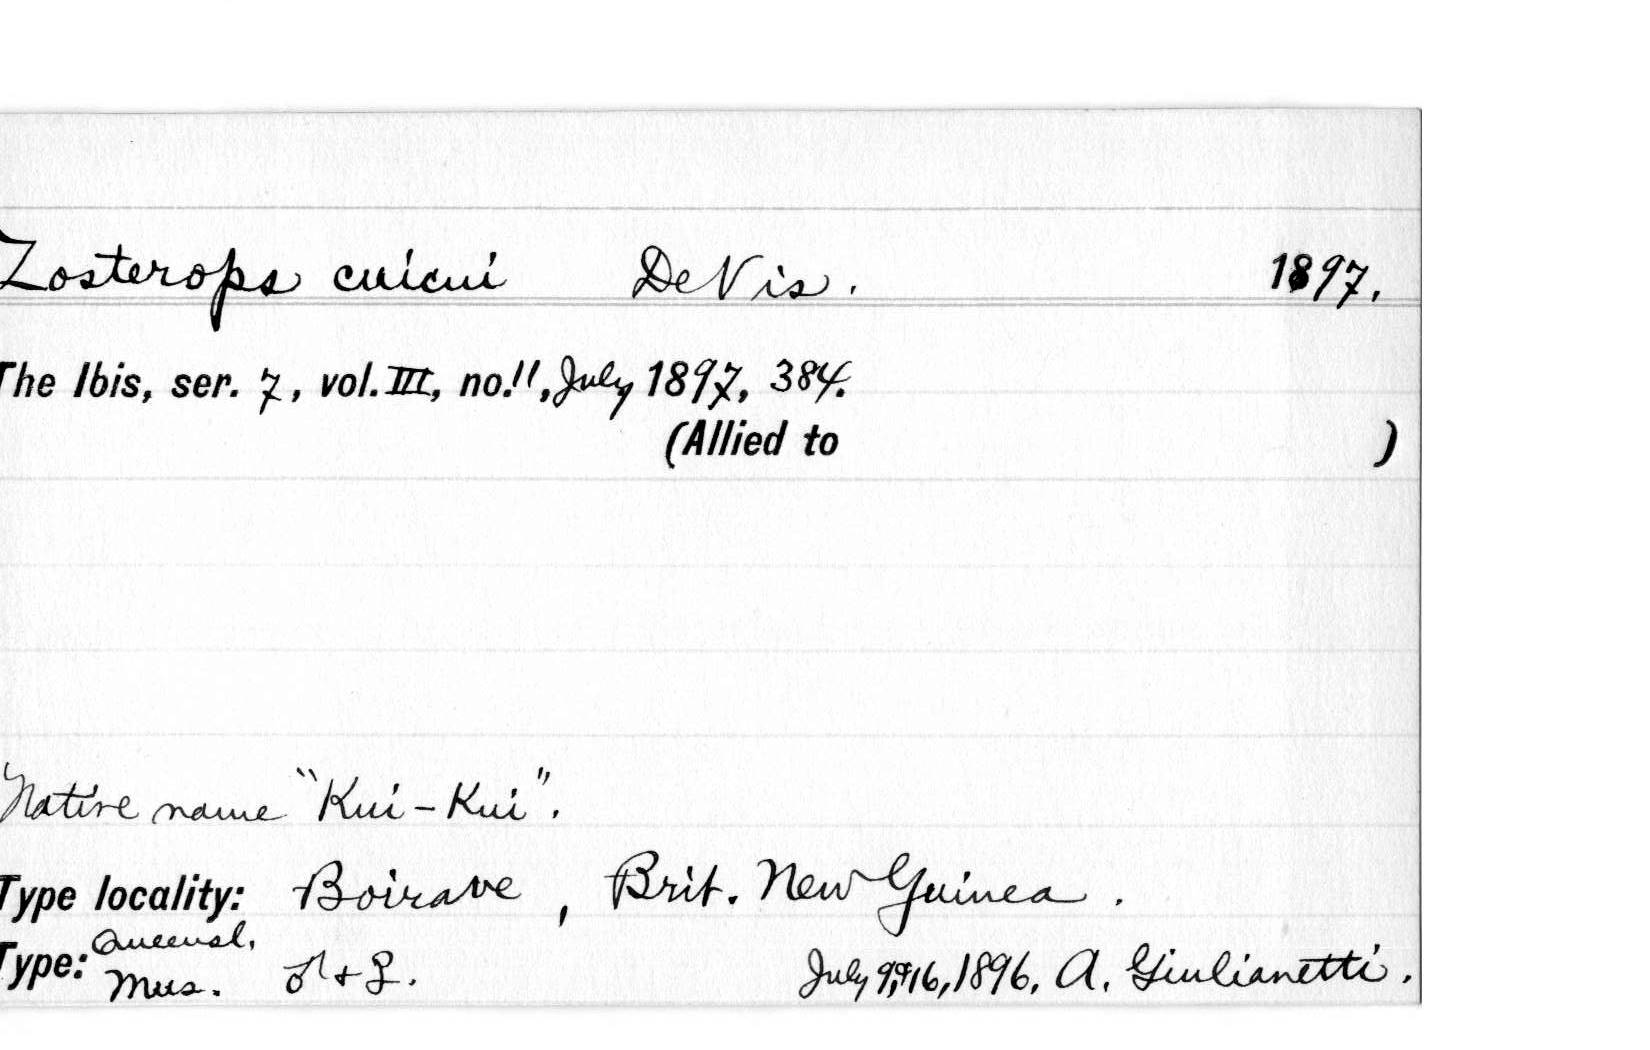 Zosterops cuicui DeVis. 1897.
The Ibis, ser. 7, vol. III, no. 11, July 1897, 384.
(Allied to )
Native name "Kui-Kui".
Type locality: Boirave, Brit. New Guinea.
Type: Queensl. Mus. ♂ + ♀. July 9, 16, 1896, A. Giulianetti.